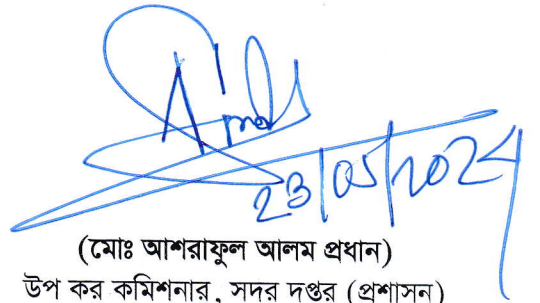 23/05/2024
(মোঃ আশরাফুল আলম প্রধান)
উপ কর কমিশনার, সদর দপ্তর (প্রশাসন)